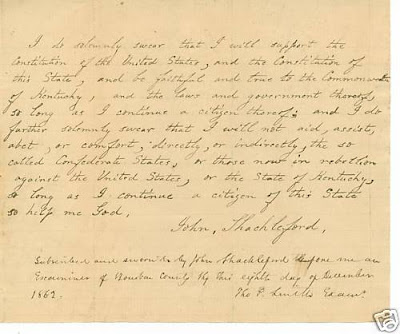 I do solemnly swear that I will support the
Constitution of the United States, and the Constitution of
this State, and be faithful and true to the Commonwealth
of Kentucky, and the laws and government thereof,
so long as I continue a citizen thereof; and I do
further solemnly swear that I will not aid, assists,
abet, or comfort, directly, or indirectly, the so
called Confederate States, or those now in rebellion
against the United States, or the State of Kentucky,
so long as I continue a citizen of this State
so help me God.
John, Shackleford,
Subscribed and sworn to by John Shackleford before me an
Examiner of Bourbon County Ky this eighth day of December
1862.
Tho P. Exam